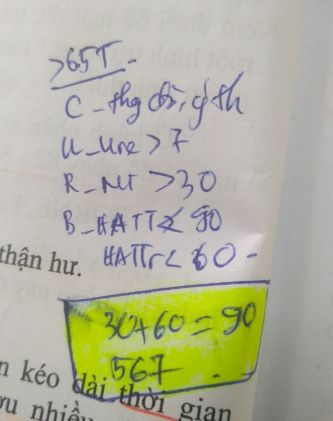 >65T
C_thg đổi, ý th
U_Ure > 7
R_NT > 30
B_HATT < 90
thận hư.
HATTr < 60
30+60 = 90
567
n kéo dài thời gian
nhiều